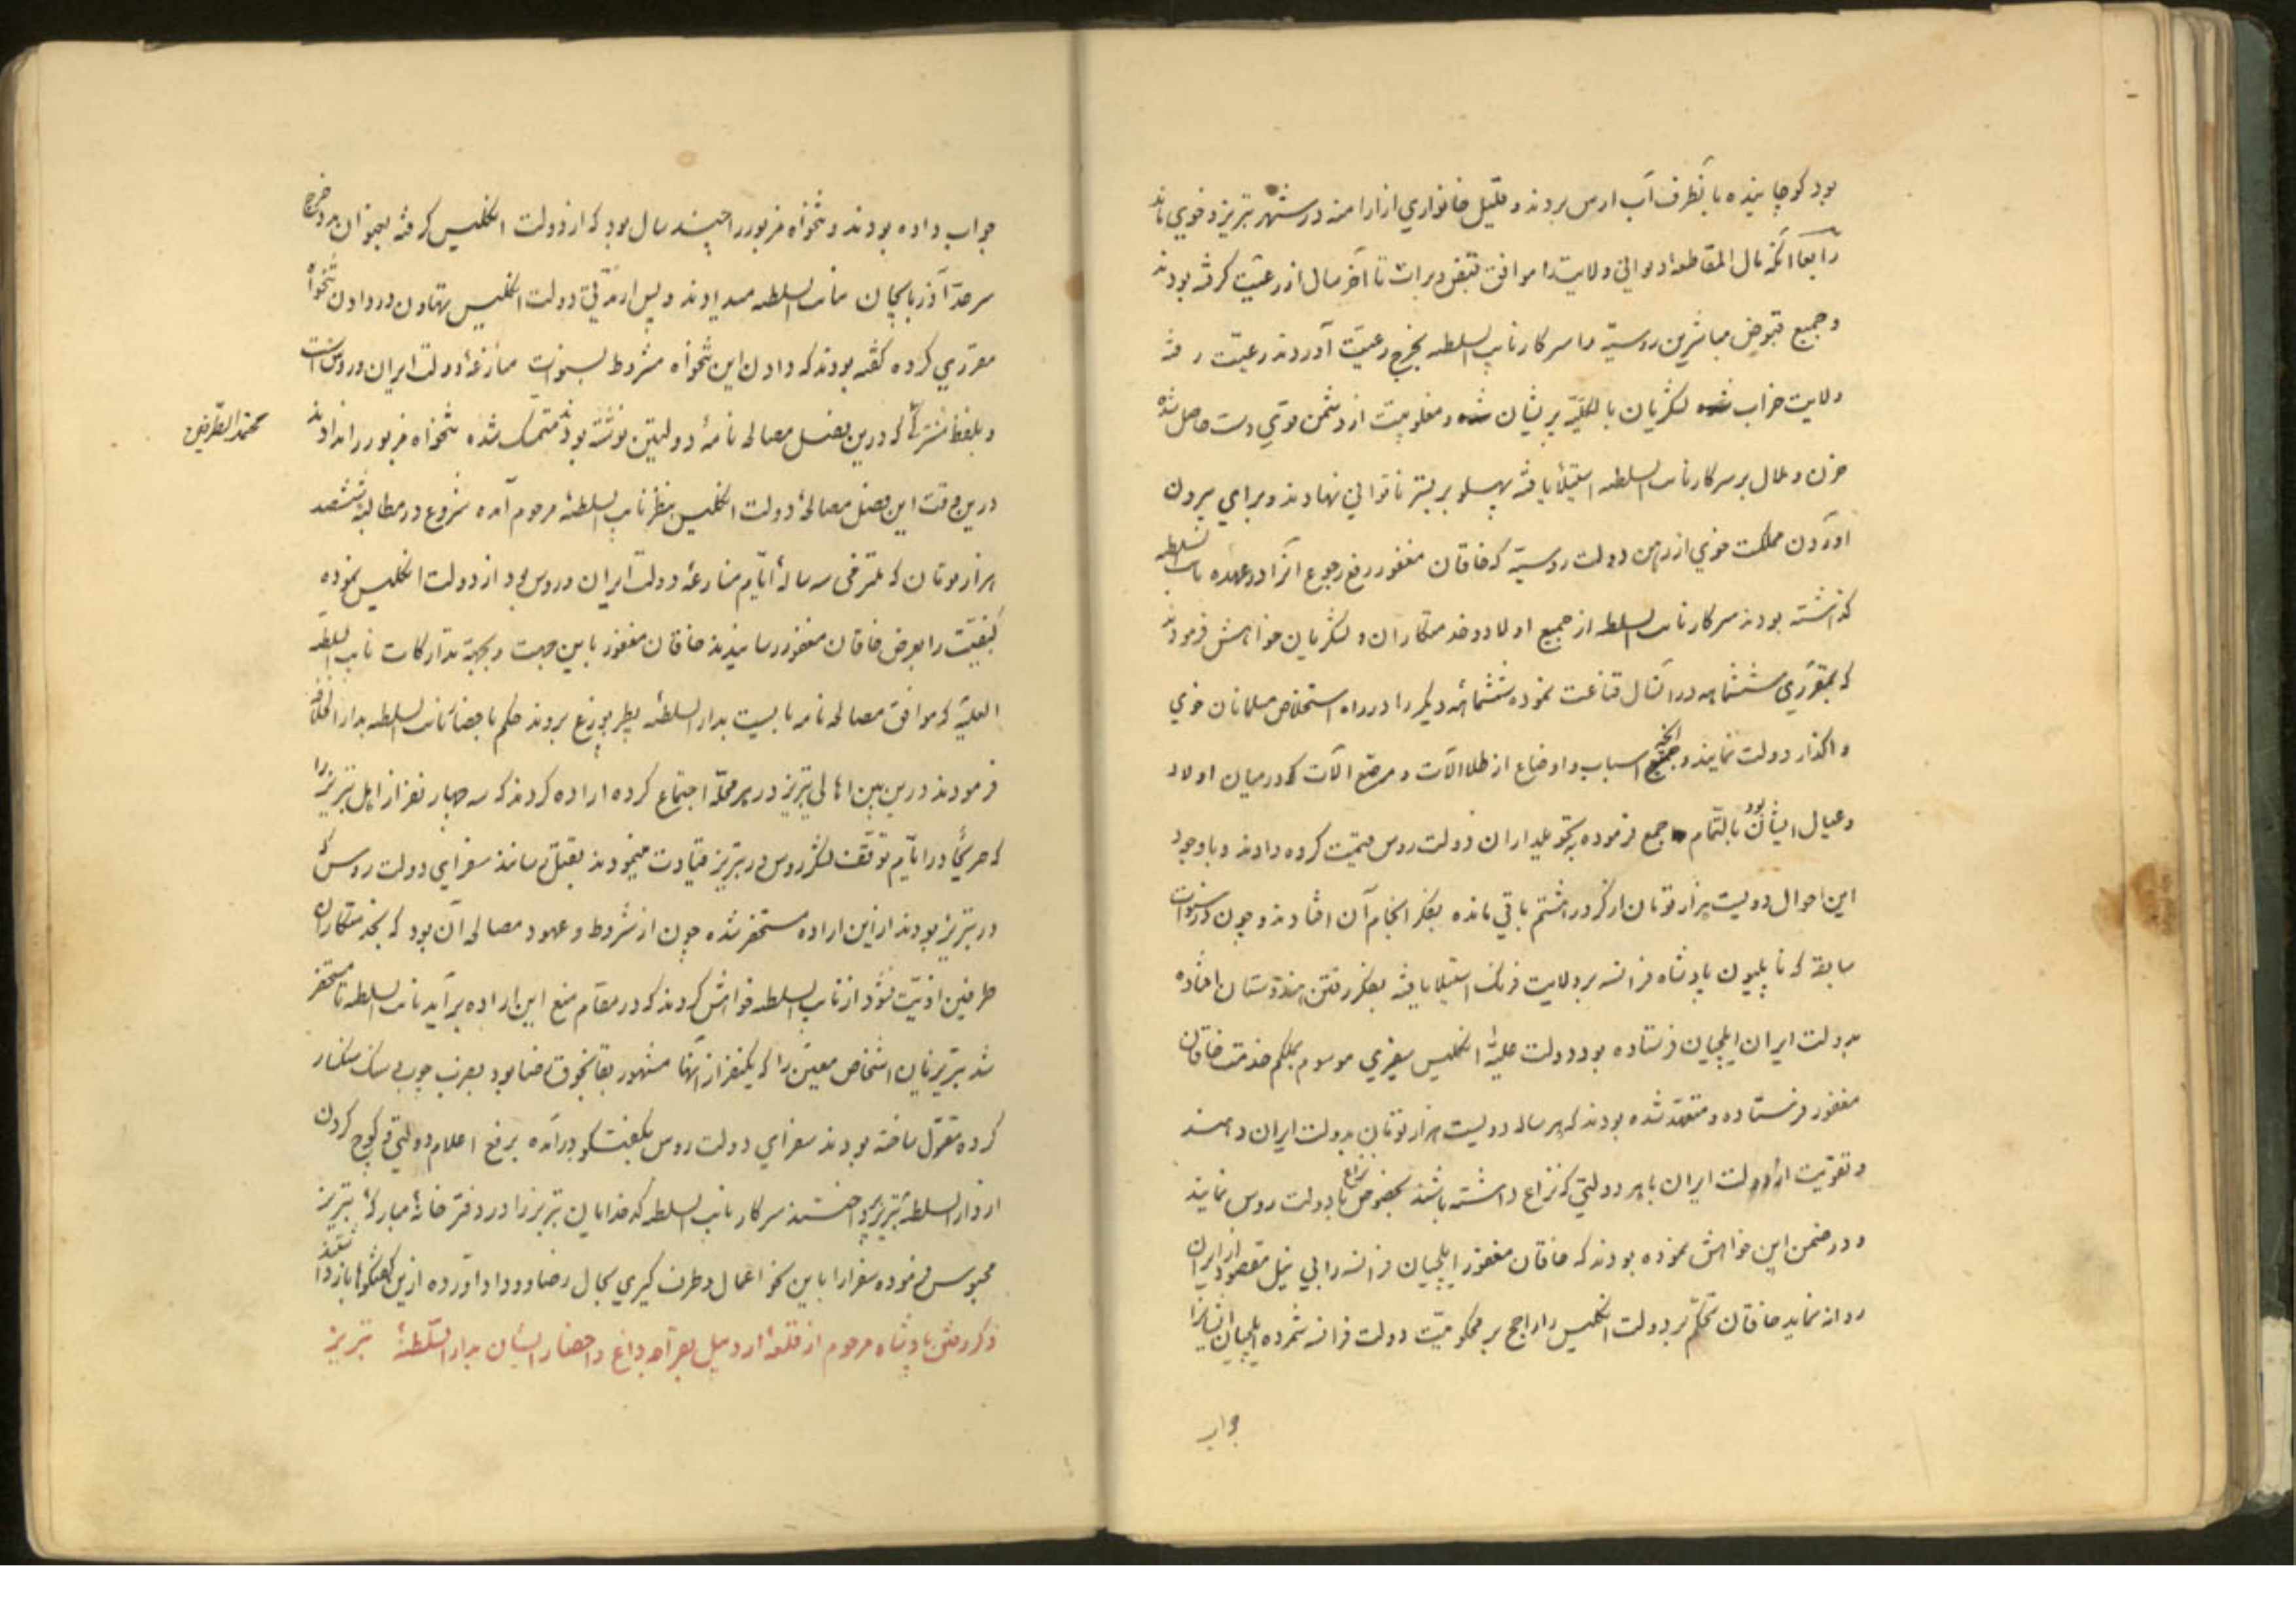 بود کوچانیده بآنطرف آب ارس بردند و قلیل خانواری از ارامنه در شهر تبریز و خوی ماند
رابعا آنکه مال المقاطعه دیوانی ولایت را موافق قبض و برات تا آخر سال از رعیت گرفته بودند
و جمیع قبوض مباشرین روسیه را سرکار نایب السلطه بخرج رعیت آوردند رعیت رفته
ولایت خراب لشکریان بالکلیه پریشان و مغلوبیت از دشمن قوی دست حاصل شده
حزن و ملال بر سرکار نایب السلطه استیلا یافته پهلو بر بستر ناتوانی نهادند و برای بیرون
آوردن مملکت خوی از رهن دولت روسیه که خاقان مغفور رفع رجوع آنرا در عهده نایب السلطه
گذاشته بودند سرکار نایب السلطه از جمیع اولاد و خدمتکاران و لشکریان خواهش فرمودند
که بمقرری ششماهه در آنسال قناعت نموده ششماهه دیگر را در راه استخلاص مسلمانان خوی
واگذار دولت نمایند و جمیع اسباب و اوضاع از طلا آلات و مرصع آلات که در میان اولاد
و عیال ایشان بود بالتمام جمع فرموده بتحویلداران دولت روس قیمت کرده دادند و با وجود
این احوال دویست هزار تومان از کرور هشتم باقی مانده بفکر انجام آن افتادند و چون در سنوات
سابقه که ناپلیون پادشاه فرانسه بر ولایت فرنگ استیلا یافته بفکر رفتن هندوستان افتاده
بدولت ایران ایلچیان فرستاده بود دولت علیهٔ انگلیس سفیری موسوم بملکم خدمت خاقان
مغفور فرستاده و متعهد شده بودند که هر ساله دویست هزار تومان بدولت ایران دهند
و تقویت از دولت ایران با هر دولتی که نزاع داشته باشند بخصوص نزاع با دولت روس نمایند
و در ضمن این خواهش نموده بودند که خاقان مغفور ایلچیان فرانسه را بی نیل مقصود از ایران
روانه نماید خاقان تحکم بر دولت انگلیس را راجح بر محکومیت دولت فرانسه شمرده ایلچیان ایشانرا
جواب
جواب داده بودند و تنخواه مزبور را چند سال بود که از دولت انگلیس گرفته بعنوان مدد خرج
سرحد آذربایجان بنایب السلطه میدادند و پس از مدتی دولت انگلیس تهاون در دادن تنخواه
مقرری کرده گفته بودند که دادن این تنخواه مشروط بسنوات منازعهٔ دولت ایران و روس است
و بلفظ مشترکی که درین فصل مصالحه نامهٔ دولتین نوشته بود متمسک شده تنخواه مزبور را ندادند
درین وقت این فصل مصالحهٔ دولت انگلیس بنظر نایب السلطهٔ مرحوم آمده شروع در مطالبهٔ ششصد
هزار تومان که مقرری سه سالهٔ ایام منازعهٔ دولت ایران و روس بود از دولت انگلیس نموده
کیفیت را بعرض خاقان مغفور رسانیدند خاقان مغفور باین جهت و بجهة تدارکات نایب السلطه
العلیه که موافق مصالحه نامه بایست بدار السلطهٔ پطربورغ بروند حکم باحضار نایب السلطه بدار الخلافه
فرمودند درین بین اهالی تبریز در هر محله اجتماع کرده اراده کردند که سه چهار نفر از اهل تبریز را
که در ایام توقف لشکر روس در تبریز قیادت مینمودند بقتل رسانند سفرای دولت روس که
در تبریز بودند ازین اراده مستحضر شده چون از شروط و عهود مصالحه آن بود که بخدمتکاران
طرفین اذیت نشود از نایب السلطه خواهش کردند که در مقام منع این اراده برآید نایب السلطه تا مستحضر
شد تبریزیان اشخاص معین را که یکنفر از آنها مشهور بود بضرب چوب و سنک سنکسار
کرده مقتول ساخته بودند سفرای دولت روس بگفتگو درآمده برفع اعلام دولتی و کوچ کردن
از دار السلطهٔ تبریز پرداختند سرکار نایب السلطه کدخدایان تبریز را در دفتر خانهٔ مبارکهٔ تبریز
محبوس فرموده سفرا را باین نحو اعمال و طرف گیری بحال رضا و وداد آورده ازین گفتگوها باز داشتند
ذکر رفتن پادشاه مرحوم از قلعهٔ اردبیل بقراجه داغ و احضار ایشان بدار السلطهٔ تبریز